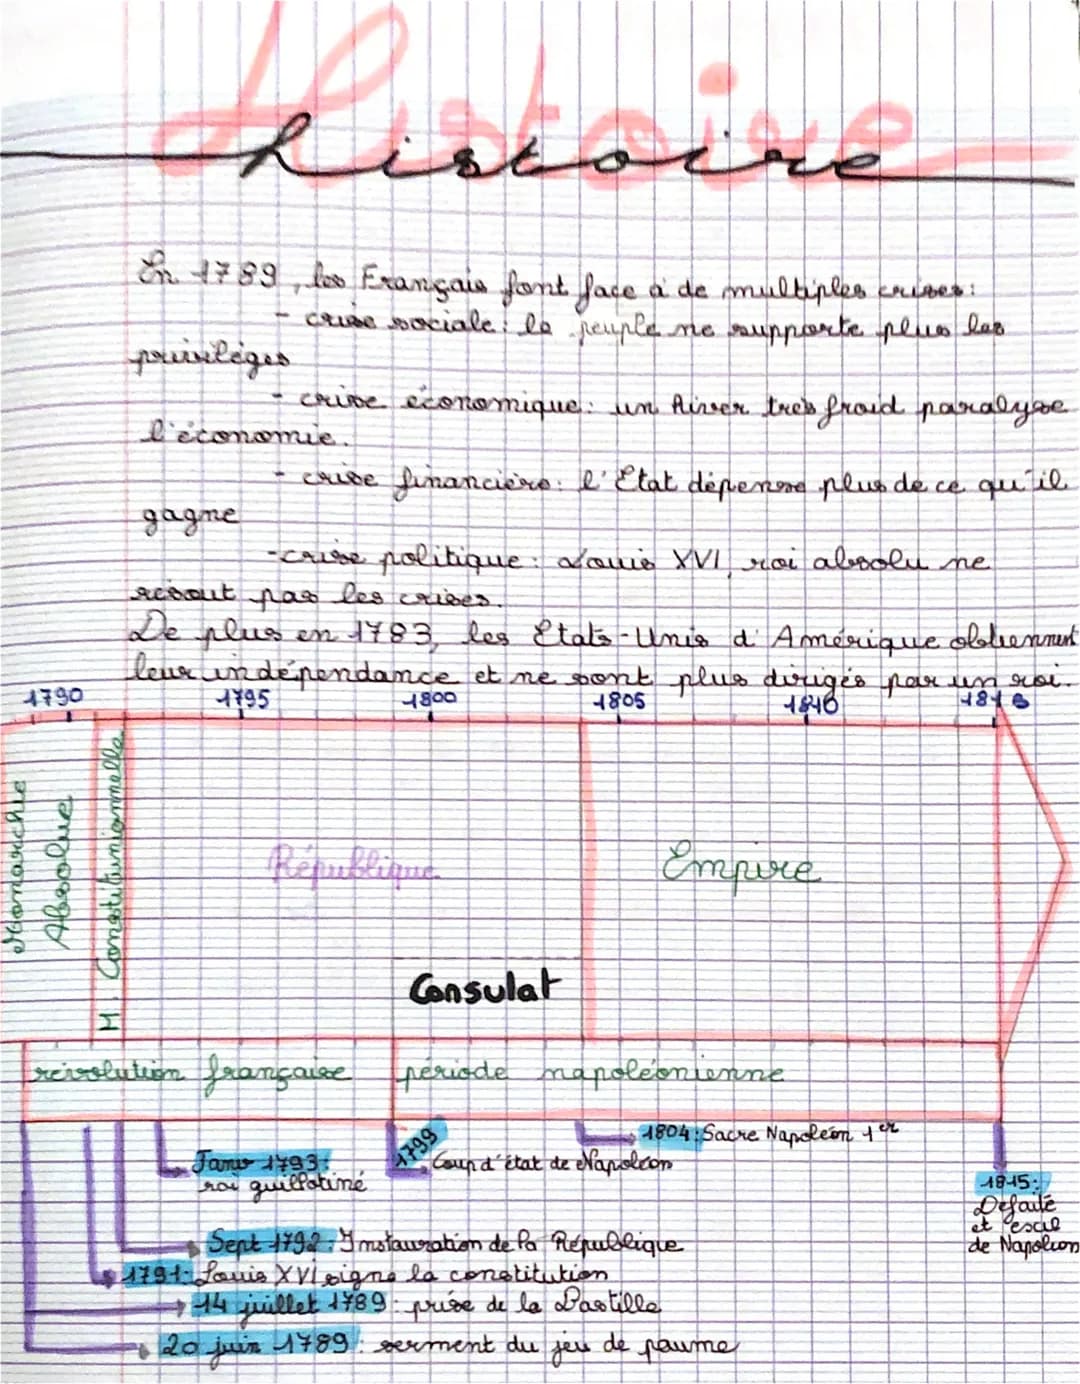 Histoire
histoire
En 1789, les Français font face à de multiples crises:
- crise sociale: le peuple ne supporte plus les
privilèges
- crise économique: un hiver très froid paralyse
l'économie.
- crise financière: l'Etat dépense plus de ce qu'il
gagne
- crise politique: Louis XVI, roi absolu ne
résout pas les crises.
De plus en 1783, les Etats-Unis d'Amérique obtiennent
leur indépendance et ne sont plus dirigés par un roi.
1790 1795 1800 1805 1810
Monarchie
Absolue
M. Constitutionnelle
République
Empire
Consulat
révolution française période napoléonienne
1804: Sacre Napoléon 1er
1799
Coup d'état de Napoléon
Janv 1793:
roi guillotiné
1815:
Defaite
et exil
de Napoléon
Sept 1792: Instauration de la République
1791: Louis XVI signe la constitution
14 juillet 1789: prise de la Bastille
20 juin 1789: serment du jeu de paume